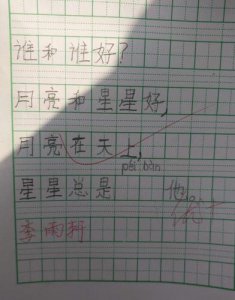 谁和谁好?
月亮和星星好,
月亮在天上,
péi bàn
星星总是 他
李雨轩